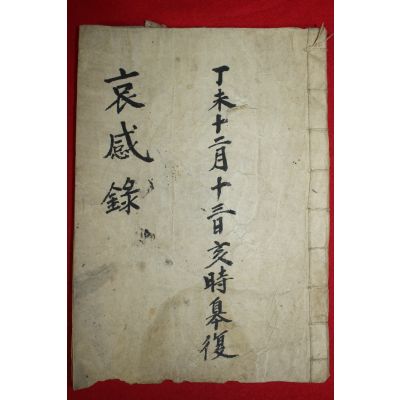 丁未十二月十三日亥時皐復
哀感錄